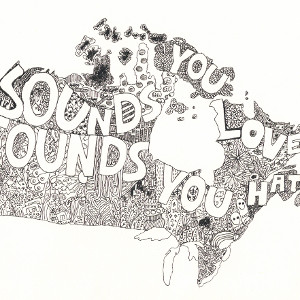 SOUNDS
YOU
LOVE
OUNDS
YOU
HAT